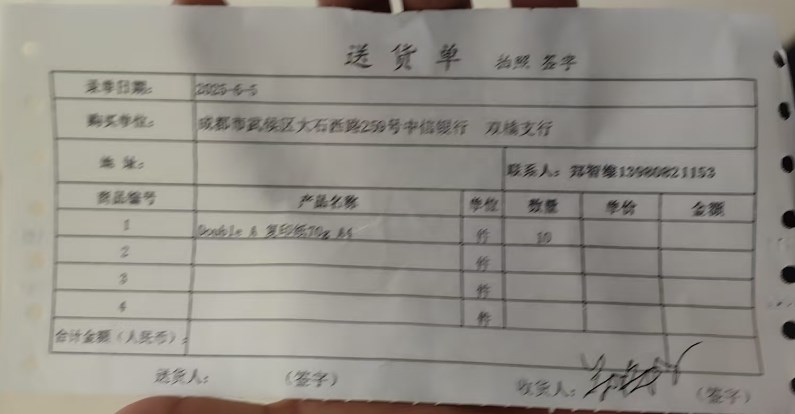 送货单 拍照 签字
送单日期： 2025-6-5
购买单位： 成都市武侯区大石西路259号中信银行 双楠支行
地址： 联系人：
商品编号 产品名称 单位 数量 单价 金额
1 Double A 复印纸70g A4 件 10
2 件
3 件
4 件
合计金额（人民币）：
送货人： （签字） 收货人： （签字）